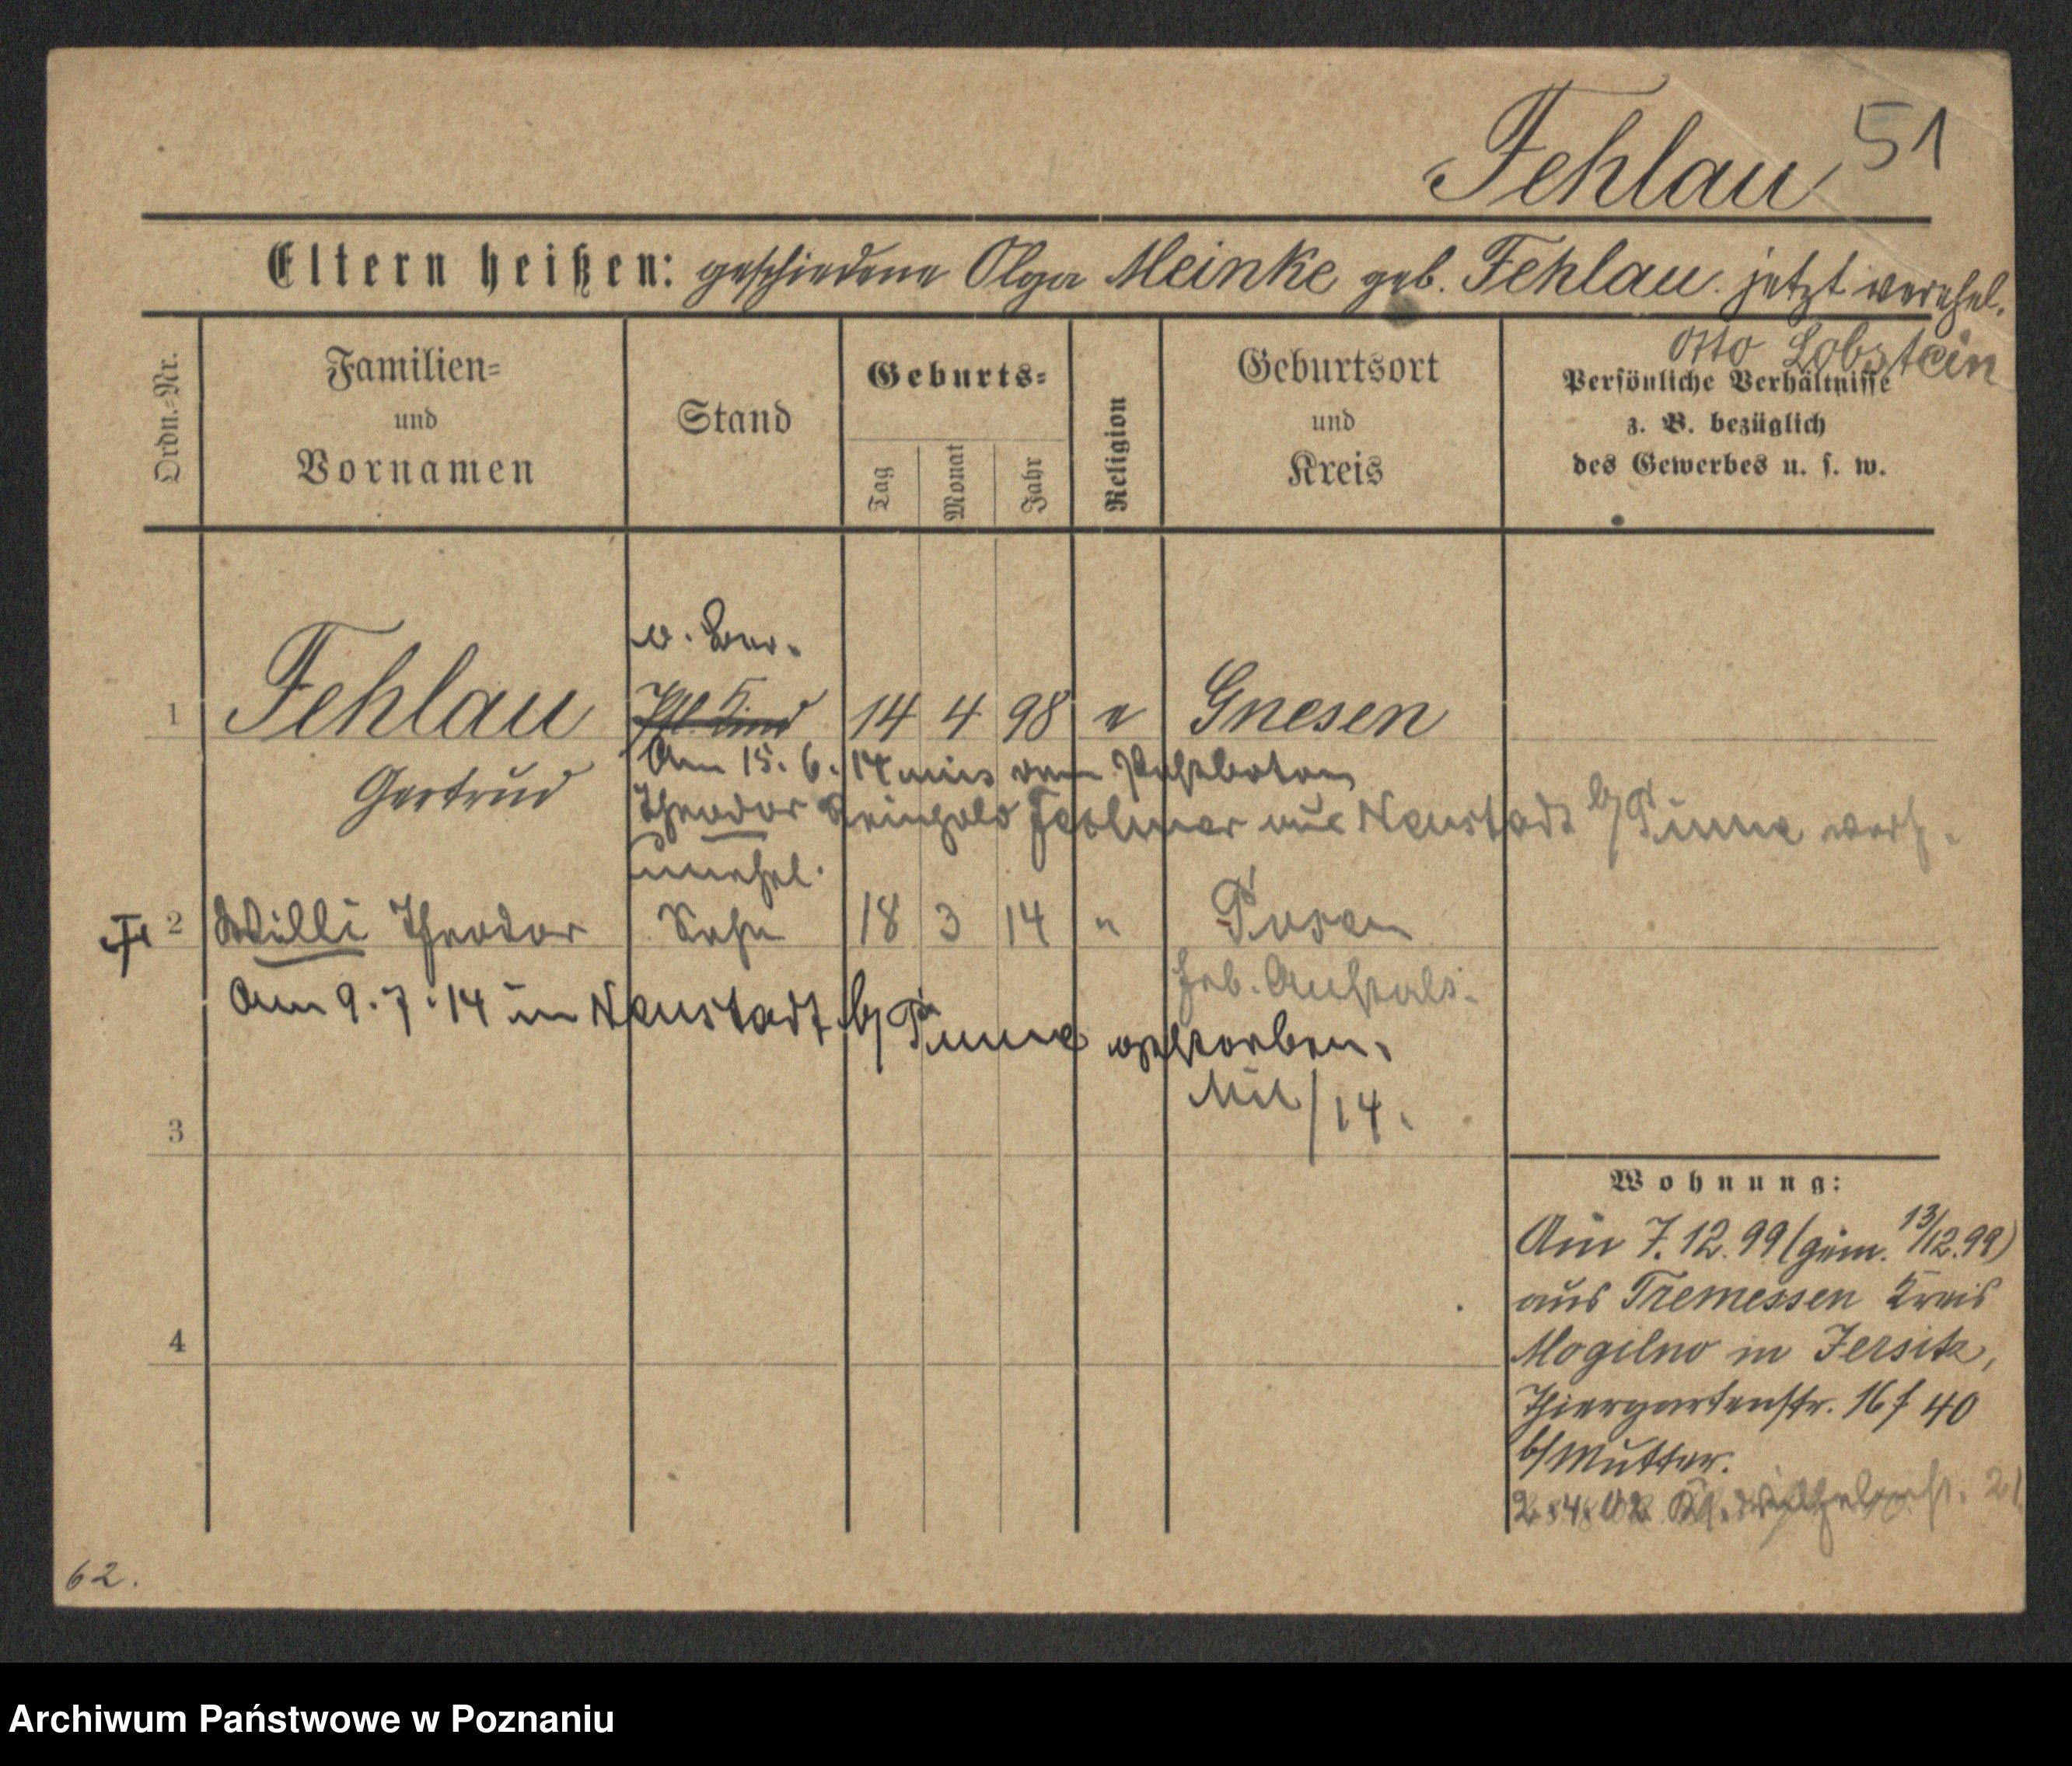 Fehlau 51
Eltern heißen: geschiedene Olga Meinke geb. Fehlau jetzt verehel.
Otto Lobstein
Ordn.=Nr.
Familien=
und
Vornamen
Stand
Geburts=
Tag
Monat
Jahr
Religion
Geburtsort
und
Kreis
Persönliche Verhältnisse
z. B. bezüglich
des Gewerbes u. s. w.
1 Fehlau 14 4 98 e Gnesen
Gertrud
Am 15. 6. 14 vom Postboten
Theodor Reinhold aus Neustadt b/Pinne
unehel.
2 Willi Theodor Sohn 18 3 14 " Posen
Am 9. 7. 14 in Neustadt b/Pinne gestorben.
Geb. Anstalt.
/14.
3
4
Wohnung:
Am 7. 12. 99 (gem. 13/12. 99)
aus Tremessen Kreis
Mogilno in Jersitz,
Thiergartenstr. 16 f 40
b/Mutter.
2. 4. 02 21
62.
Archiwum Państwowe w Poznaniu